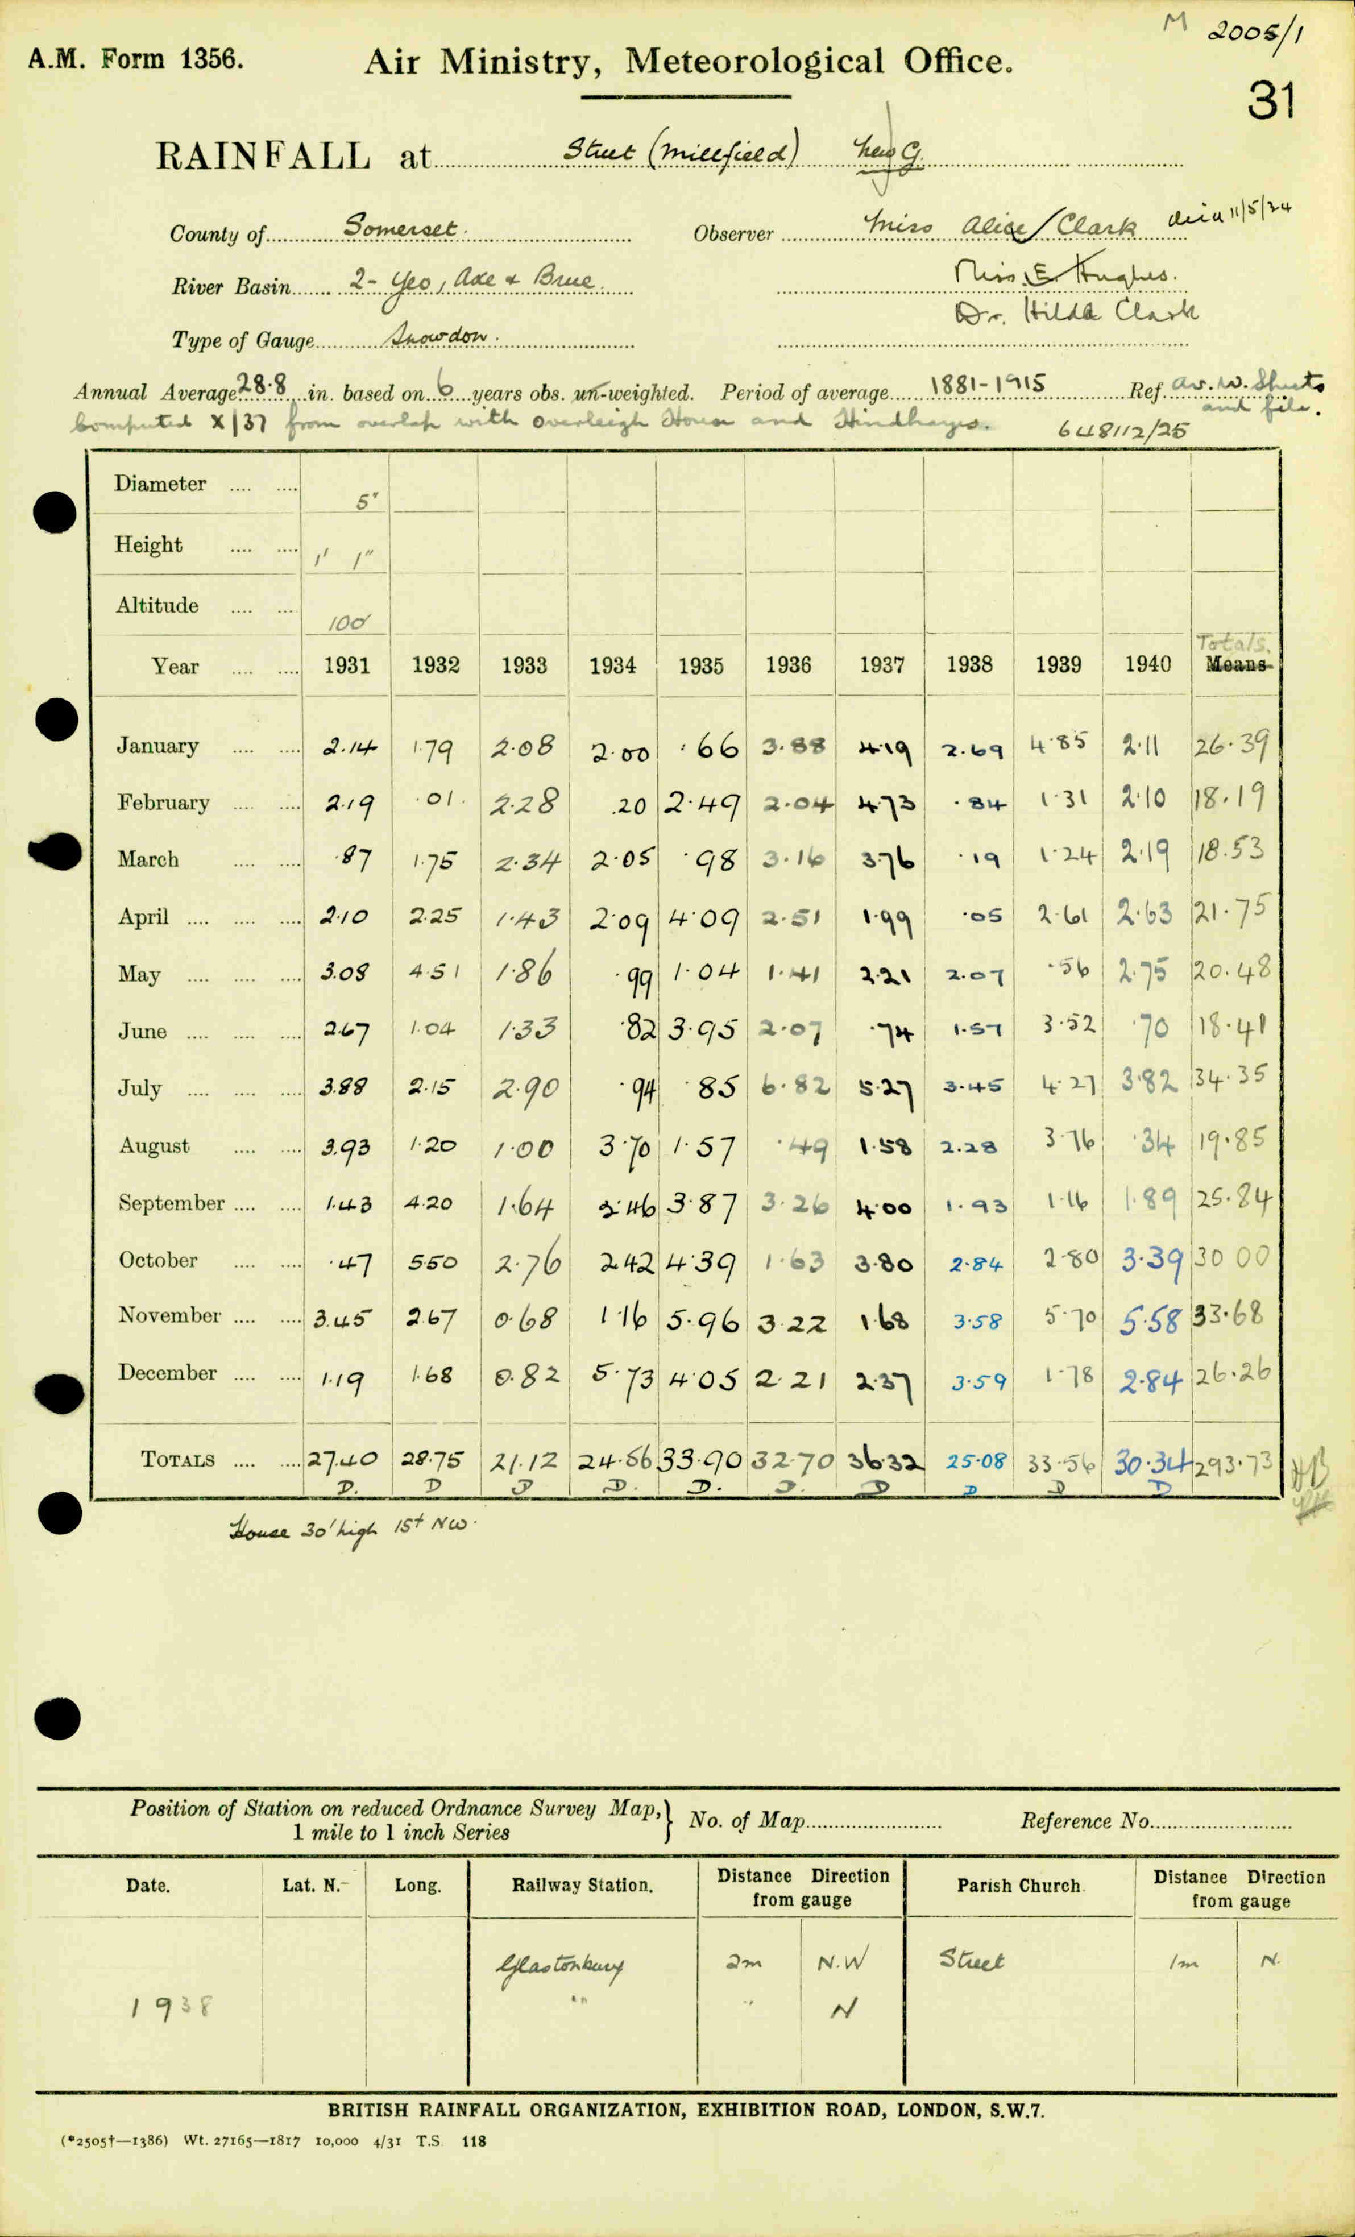 M 2005/1
A.M. Form 1356. Air Ministry, Meteorological Office.
31
RAINFALL at Street (Millfield) New G.
County of Somerset. Observer Miss Alice Clark died 11/5/34
River Basin 2- Yeo, Axe + Brue. Miss E. Hughes.
Dr. Hilda Clark
Type of Gauge Snowdon.
Annual Average 28.8 in. based on 6 years obs. un-weighted. Period of average 1881-1915 Ref. av. w. Sheets
and file.
Computed X/37 from overlap with Overleigh House and Hindhayes. 648112/25
Diameter 5"
Height 1' 1"
Altitude 100'
Totals.
Year 1931 1932 1933 1934 1935 1936 1937 1938 1939 1940 Means
January 2.14 1.79 2.08 2.00 .66 3.88 4.19 2.69 4.85 2.11 26.39
February 2.19 .01 2.28 .20 2.49 2.04 4.73 .84 1.31 2.10 18.19
March .87 1.75 2.34 2.05 .98 3.16 3.76 .19 1.24 2.19 18.53
April 2.10 2.25 1.43 2.09 4.09 2.51 1.99 .05 2.61 2.63 21.75
May 3.08 4.51 1.86 .99 1.04 1.41 2.21 2.07 .56 2.75 20.48
June 2.67 1.04 1.33 .82 3.95 2.07 .74 1.57 3.52 .70 18.41
July 3.88 2.15 2.90 .94 .85 6.82 5.27 3.45 4.27 3.82 34.35
August 3.93 1.20 1.00 3.70 1.57 .49 1.58 2.28 3.76 .34 19.85
September 1.43 4.20 1.64 2.46 3.87 3.26 4.00 1.93 1.16 1.89 25.84
October .47 5.50 2.76 2.42 4.39 1.63 3.80 2.84 2.80 3.39 30 00
November 3.45 2.67 0.68 1.16 5.96 3.22 1.68 3.58 5.70 5.58 33.68
December 1.19 1.68 0.82 5.73 4.05 2.21 2.37 3.59 1.78 2.84 26.26
TOTALS 27.40 28.75 21.12 24.56 33.90 32.70 36.32 25.08 33.56 30.34 293.73
D. D D D. D. D. D D D D
House 30' high 15ft NW.
Position of Station on reduced Ordnance Survey Map, } No. of Map Reference No.
1 mile to 1 inch Series
Date. Lat. N. Long. Railway Station. Distance Direction from gauge Parish Church Distance Direction from gauge
Glastonbury 2m N.W Street 1m N.
1938 " " N
BRITISH RAINFALL ORGANIZATION, EXHIBITION ROAD, LONDON, S.W.7.
(*2505†—1386) Wt. 27165—1817 10,000 4/31 T.S. 118